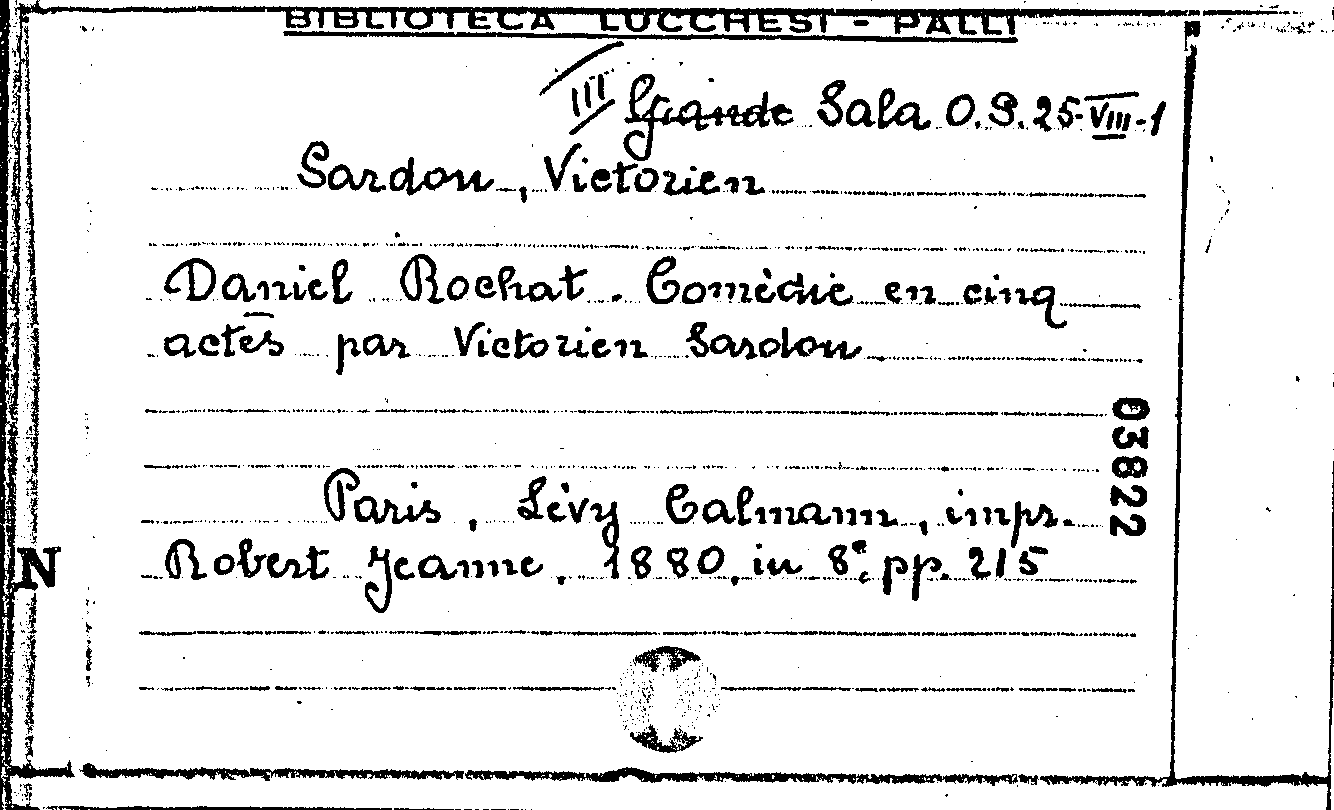 BIBLIOTECA LUCCHESI - PALLI
III Grande Sala O.S. 25-VIII-1
Sardou, Victorien
Daniel Rochat. Comèdie en cinq
actes par Victorien Sardou.
03822
Paris, Lèvy Calmann, impr.
N
Robert Jeanne, 1880, in 8°, pp. 215